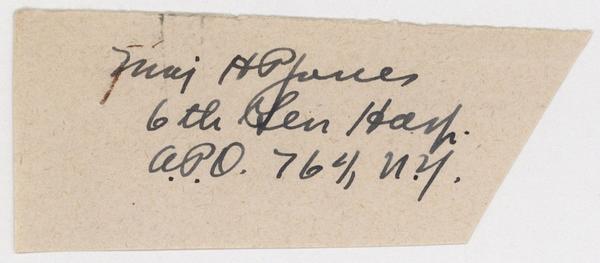 Maj H P Jones
6th Gen Hosp.
A.P.O. 764, N.Y.